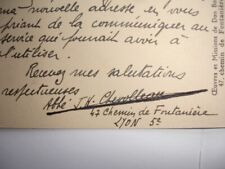 ma nouvelle adresse en vous
priant de la communiquer au
service qui pourrait avoir à
l'utiliser.
Recevez mes salutations
respectueuses
Abbé J.H.
47 Chemin de Fontanière
LYON 5e
Œuvres et Missions de Don Bosco
47, chemin de Fontanières